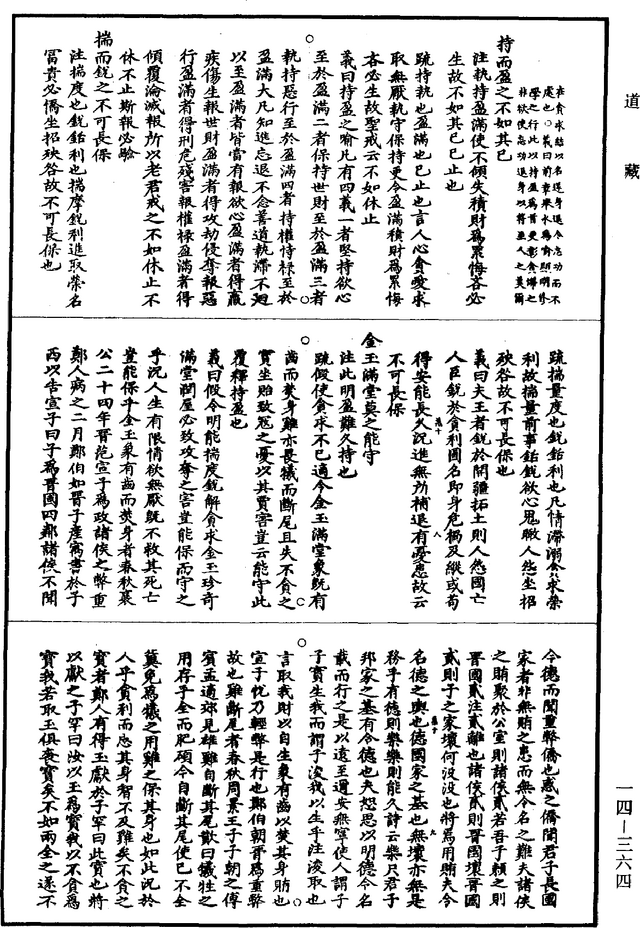 道藏
在貪求結以名遂身退令忘功而不
處也○義曰前章柔水為喻顯明修
學之行此以持盈為首更彰貪婪之
非欲使忘功退身以歸聖人之美爾
持而盈之不如其已
注執持盈滿使不傾失積財為累悔吝必
生故不如其已已止也
疏持執也盈滿也已止也言人心貪愛求
取無厭執守保持更令盈滿積財為累悔
吝必生故聖戒云不如休止
義曰持盈之喻凡有四義一者堅持欲心
至於盈滿二者保持世財至於盈滿三者
執持惡行至於盈滿四者持權恃祿至於
盈滿大凡知進忘退不念善道執滯不迴
以至盈滿者皆當有報欲心盈滿者得羸
疾傷生報世財盈滿者得攻劫侵奪報惡
行盈滿者得刑危殘害報權祿盈滿者得
傾覆淪滅報所以老君戒之不如休止不
休不止斯報必驗
揣而銳之不可長保
注揣度也銳銛利也揣摩銳利進取榮名
富貴必僑坐招殃咎故不可長保也
疏揣量度也銳銛利也凡情滯溺貪求榮
利故揣量前事銛銳欲心鬼瞰人怨坐招
殃咎故不可長保也
義曰夫王者銳於開疆拓土則人怨國亡
人臣銳於貪利圖名即身危禍及縱或苟
得安能長久況進無功補退有憂患故云
不可長保
金玉滿堂莫之能守
注此明盈難久持也
疏假使貪求不已適令金玉滿堂象既有
齒而焚身雞亦畏犧而斷尾且失不貪之
寶坐貽致寇之憂以其賈害豈云能守此
覆釋持盈也
義曰假令明能揣度銳解貪求金玉珍奇
滿堂潤屋必致攻奪之害豈能保而守之
乎況人生有限情欲無厭既不救其死亡
豈能保乎金玉象有齒而焚身者春秋襄
公二十四年晉范宣子為政諸侯之幣重
鄭人病之二月鄭伯如晉子產寓書於子
西以告宣子曰子為晉國四鄰諸侯不聞
令德而聞重幣僑也惑之僑聞君子長國
家者非無賄之患而無令名之難夫諸侯
之賄聚於公室則諸侯貳若吾子賴之則
晉國貳注貳離也諸侯貳則晉國壞晉國
貳則子之家壞何沒沒也將焉用賄夫令
名德之輿也德國家之基也無壞亦無是
務乎有德則樂樂則能久詩云樂只君子
邦家之基有令德也夫恕思以明德令名
載而行之是以遠至邇安無寧使人謂子
子寶生我而謂子浚我以生乎注浚取也
言取我財以自生象有齒以焚其身賄也
宣子忻乃輕幣是行也鄭伯朝晉為重幣
故也雞斷尾者春秋周景王子子朝之傅
賓孟適郊見雄雞自斷其尾歎曰犧牲之
用存乎全而肥碩今自斷其尾使已不全
冀免為犧之用雞之保其身也如此況於
人乎貪利而忘其身智不及雞矣不貪之
寶者鄭人有得玉獻於子罕曰此寶也將
以獻之子罕曰汝以玉為寶我以不貪為
寶我若取玉俱喪寶矣不如兩全之遂不
一四—三六四